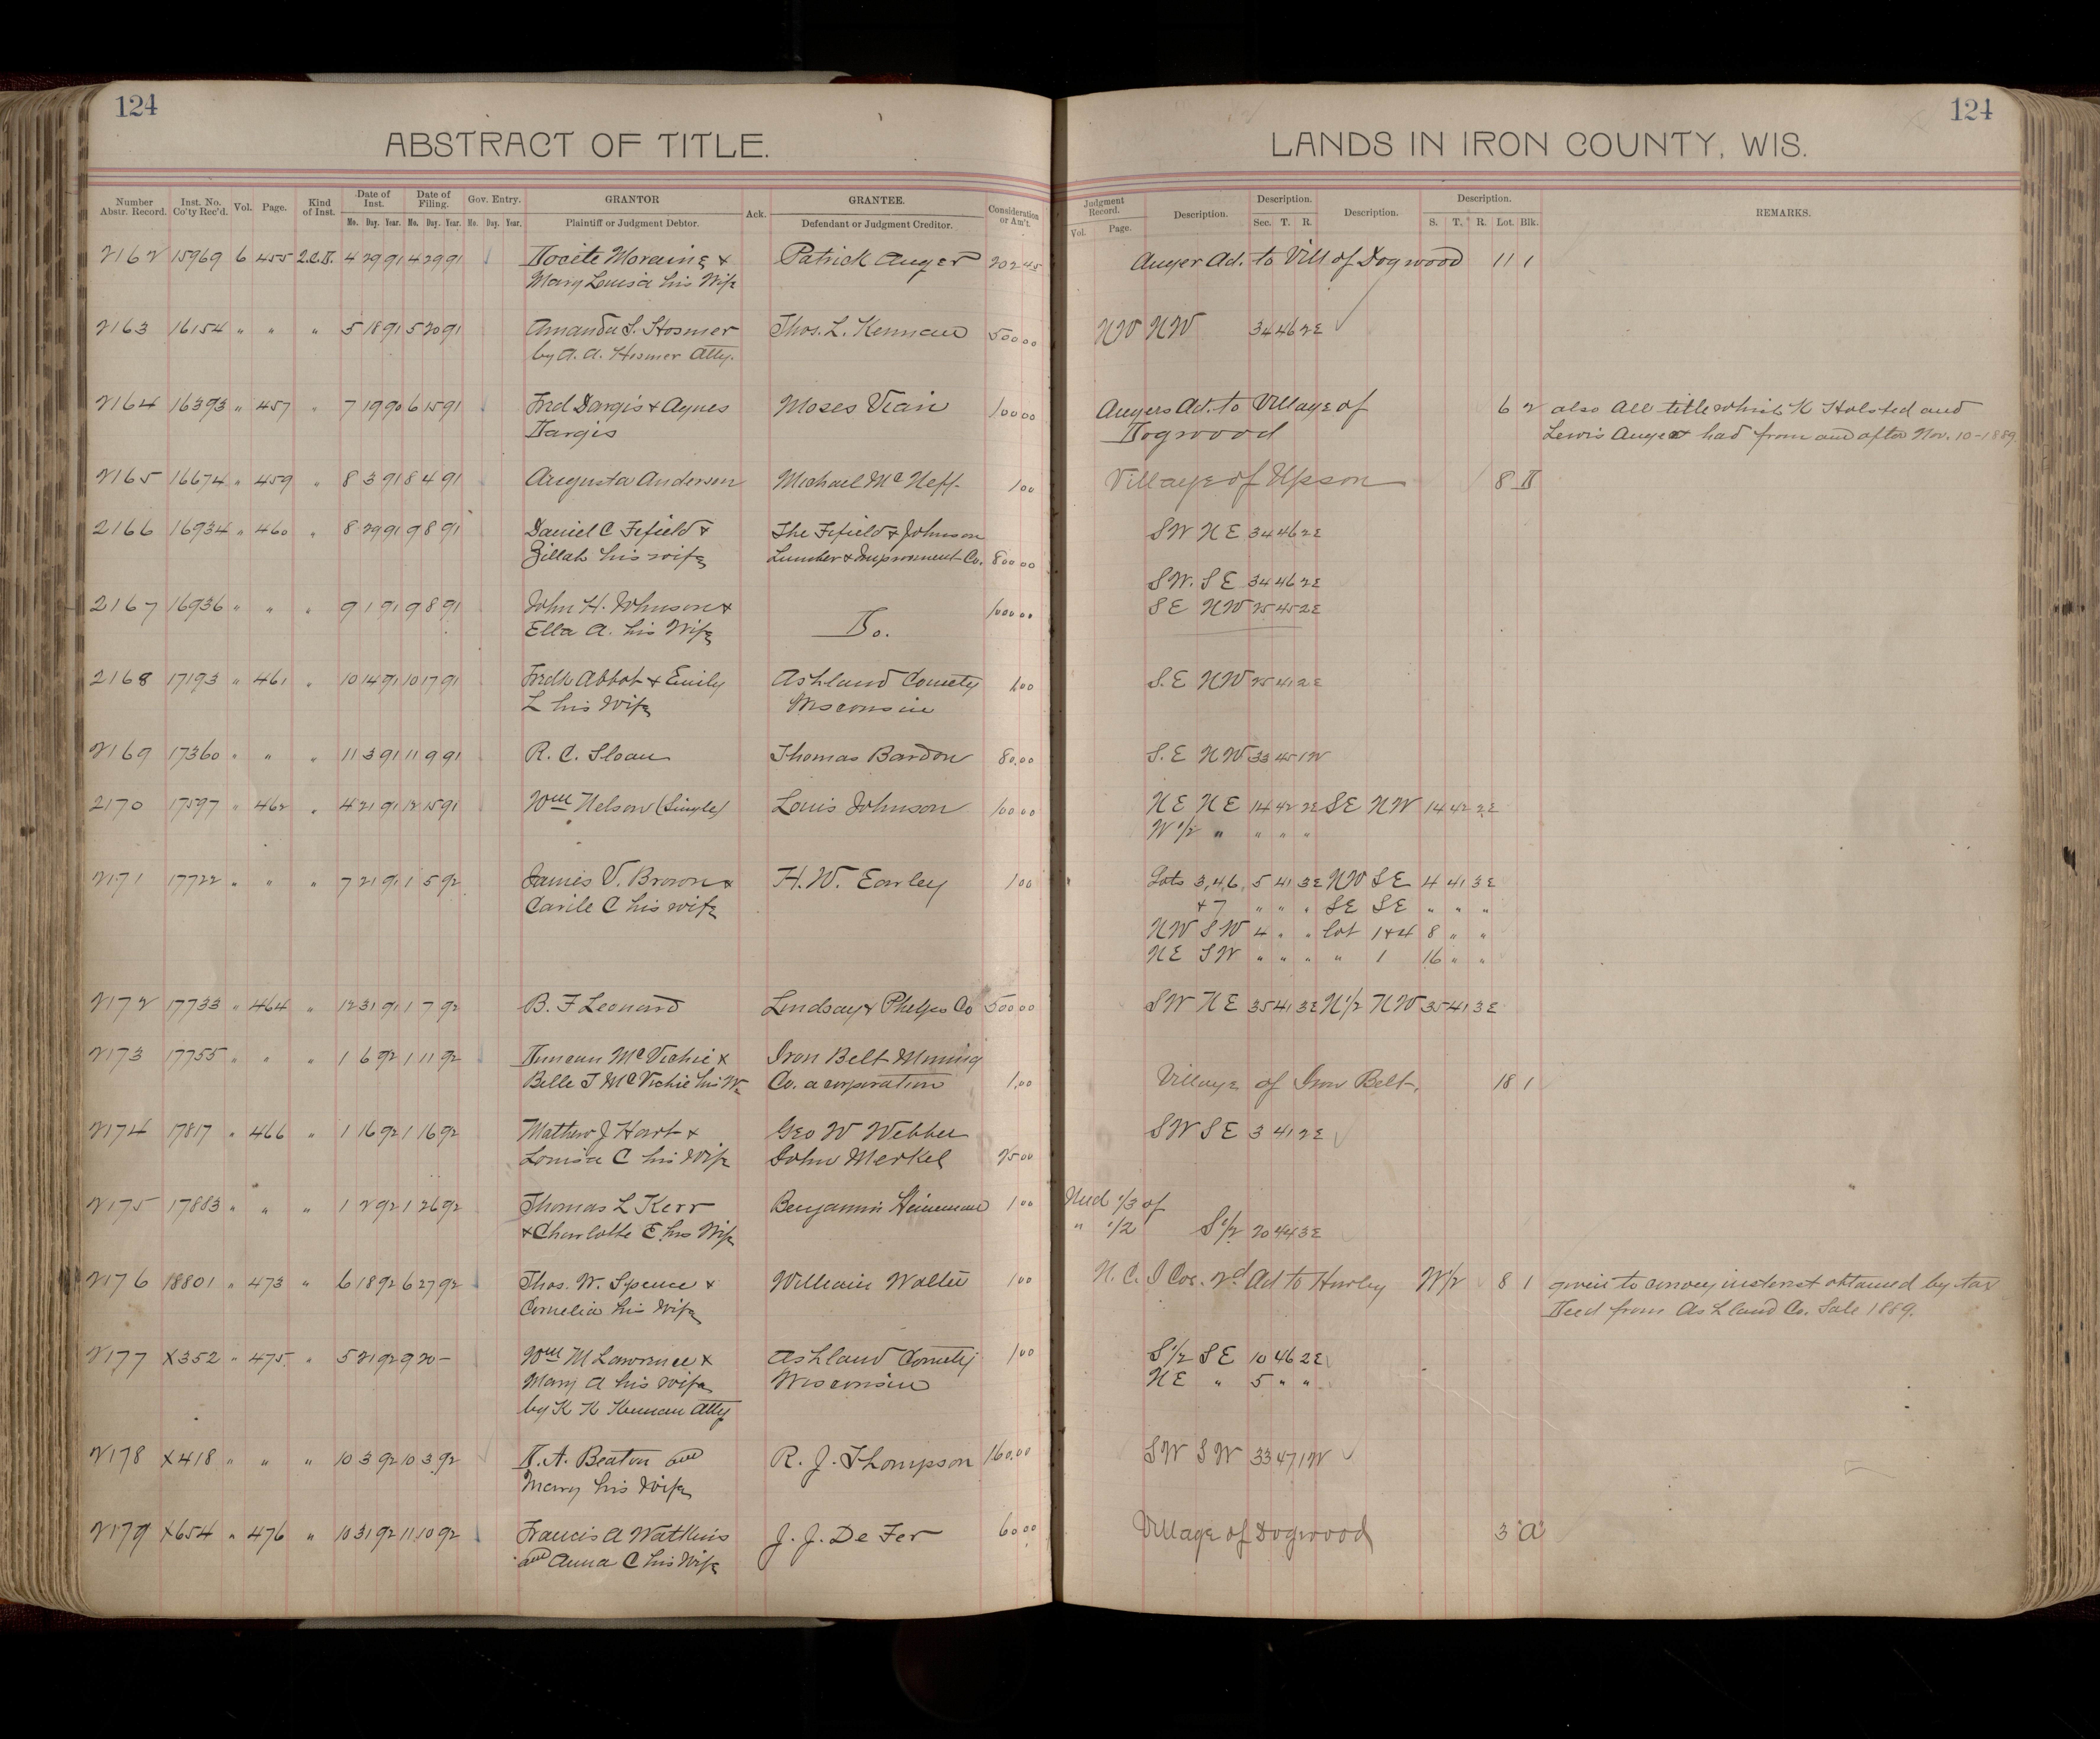 124
ABSTRACT OF TITLE.
Number Abstr. Record. Inst. No. Co'ty Rec'd. Vol. Page. Kind of Inst. Date of Inst. Mo. Day. Year. Date of Filing. Mo. Day. Year. Gov. Entry. Mo. Day. Year. GRANTOR Plaintiff or Judgment Debtor. Ack. GRANTEE. Defendant or Judgment Creditor. Consideration or Am't.
124
LANDS IN IRON COUNTY, WIS.
Judgment Record. Vol. Page. Description. Description. Sec. T. R. Description. Description. S. T. R. Lot. Blk. REMARKS.
2162 15969 6 455 2.C.D. 4 29 91 4 29 91 Docite Moraine & Patrick Auger 202 45 Auger Ad. to Vill of Dogwood 11 1
Mary Louisa his Wife
2163 16154 " " " 5 18 91 5 20 91 Amanda S. Hosmer Thos. L. Kennan 500 00 NW NW 34 46 2E
by A. A. Hosmer Atty.
2164 16393 " 457 " 7 19 90 6 15 91 Fred Dargis & Agnes Moses Viain 100 00 Augers Ad. to Village of 6 2 also All title which K Holsted and
Dargis Dogwood Lewis Auger had from and after Nov. 10-1889.
2165 16674 " 459 " 8 3 91 8 4 91 Augusta Anderson Michael Mc Neff. 1 00 Village of Upson 8 D
2166 16934 " 460 " 8 29 91 9 8 91 Daniel C Fifield & The Fifield & Johnson SW NE 34 46 2E
Zillah his wife Lumber & Improvment Co. 800 00
SW. SE 34 46 2E
2167 16936 " " " 9 1 91 9 8 91 John H. Johnson & Do. 1000 00 SE NW 25 45 2E
Ella A. his Wife
2168 17193 " 461 " 10 14 91 10 17 91 Fredk Abbot & Emily Ashland County 1 00 S.E NW 25 41 2E
L his Wife Wisconsin
2169 17360 " " " 11 3 91 11 9 91 R. C. Sloan Thomas Bardon 80.00 S.E NW 33 45 1W
2170 17597 " 462 " 4 21 91 12 15 91 Wm Nelson (Single) Louis Johnson 100.00 NE NE 14 42 2E SE NW 14 42 2E
W 1/2 " " " "
2171 17722 " " " 7 21 91 1 5 92 James V. Brown & H. W. Earley 1 00 Lots 3,4,6, 5 41 3E NW SE 4 41 3E
Carile C his wife & 7 " " " SE SE " " "
NW SW 4 " " lot 1&4 8 " "
NE SW " " " " 1 16 " "
2172 17733 " 464 " 12 31 91 1 7 92 B. F Leonard Lindsay & Phelps Co 500 00 SW NE 35 41 3E N1/2 NW 35 41 3E
2173 17755 " " " 1 6 92 1 11 92 Duncan McVichie & Iron Belt Mining
Belle J McVichie his W. Co. a corporation 1.00 Village of Iron Belt. 18 1
2174 17817 " 466 " 1 16 92 1 16 92 Mathew J Hart & Geo W Webber SW SE 3 41 2E
Louisa C his Wife John Merkel 25 00
2175 17883 " " " 1 2 92 1 26 92 Thomas L Kerr Benjamin Heineman 1 00 Und 1/3 of
& Charlotte E his Wife " 1/2 S1/2 20 44 3E
2176 18801 " 473 " 6 18 92 6 27 92 Thos. W. Spence & William Walter 1 00 N. C. I Cos. 2d Ad to Hurley W1/2 8 1 given to convey interest obtained by tax
Cornelia his Wife Deed from Ashland Co. Sale 1889.
2177 X352 " 475 " 5 21 92 9 20 - Wm M Lawrence & Ashland County 1 00 S1/2 SE 10 46 2E
Mary A his wife Wisconsin NE " 5 " "
by K K Kennan Atty
2178 X418 " " " 10 3 92 10 3 92 D. A. Beaton and R. J. Thompson 160.00 SW SW 33 47 1W
Mary his Wife
2179 X654 " 476 " 10 31 92 11 10 92 Francis A Watkins J. J. De Fer 60 00 Village of Dogwood 3 "A"
and Anna C his Wife